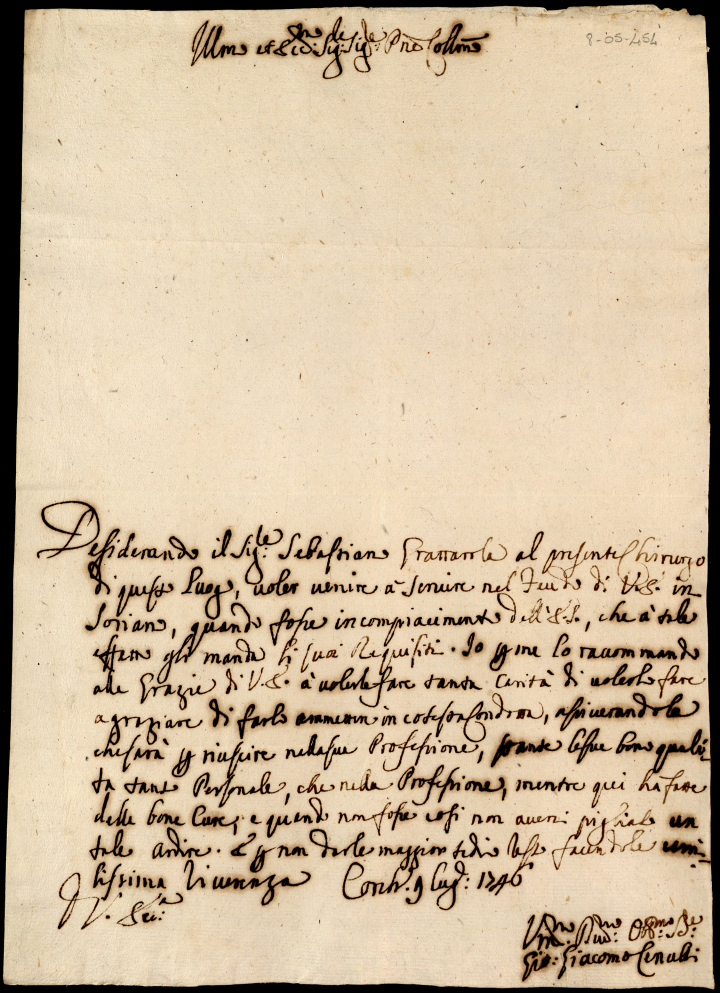 Illmo et Ecc:mo Sig:re Sig:re Pne Collmo
8-05-454
Desiderando il Sig:re Sebastiano Grattarola al presente Chirurgo
di questo Luogo, voler venire à servire nel Feudo di V.E. in
Soriano, quando fosse in compiacimento dell'E.S., che à tale
effetto gli manda li suoi Requisiti. Io p me lo raccommando
alle Grazie di V.E. à volerle fare tanta Carità di volerlo fare
agraziare di farlo ammettere in cotesta Condotta, assicurandola
che sarà p riuscire nella sua Professione, stante le sue bone quali-
tà tanto Personale, che nella Professione, mentre qui hà fatto
delle bone Cure, e quando non fosse così non averei pigliato un
tale ardire. E p non darle maggior tedio resto facendole umi-
lissima riverenza 9 lug: 1746
D V. Ecc:a
Um:mo Div:mo Obb:mo Se:
Gio: Giacomo